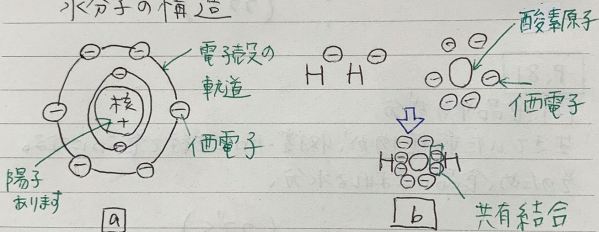 水分子の構造
電子殻の
軌道
核
+
価電子
陽子
あります
a
H H
酸素原子
価電子
H O H
共有結合
b